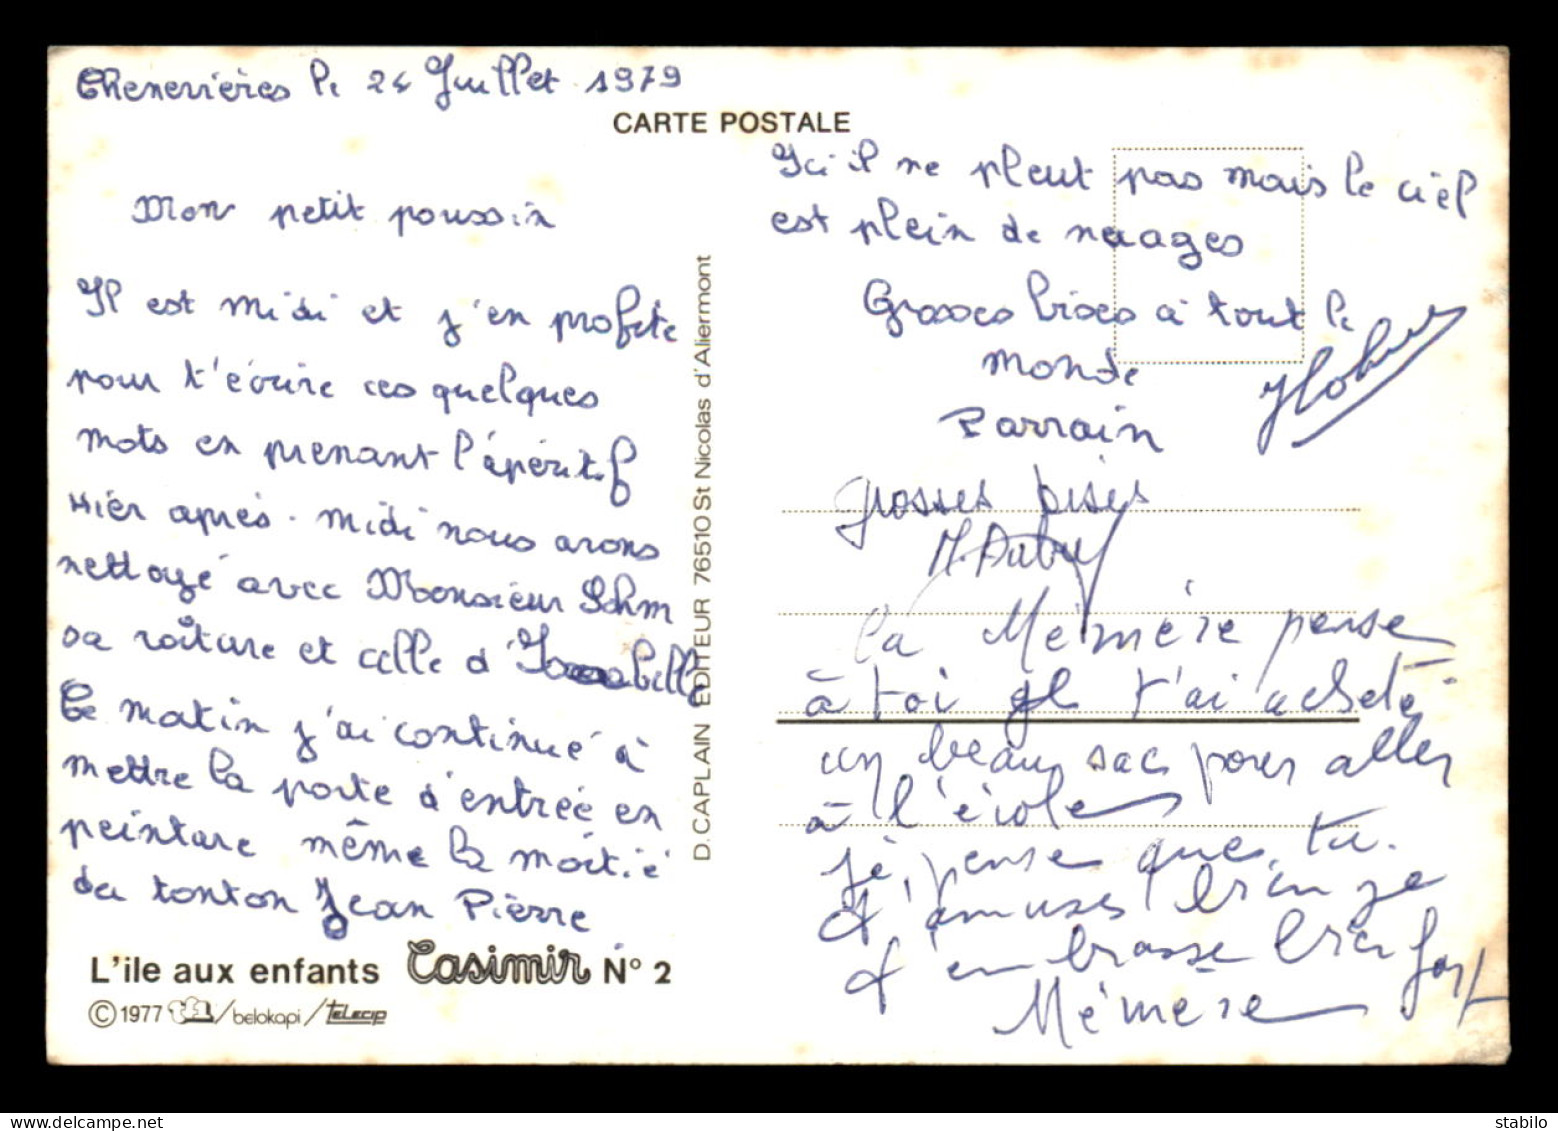 Chenevières le 24 Juillet 1979
CARTE POSTALE
Mon petit poussin
Il est midi et j'en profite
pour t'écrire ces quelques
mots en prenant l'apéritif
Hier après-midi nous avons
nettoyé avec Monsieur Schm
sa voiture et celle d'Isabelle
Ce matin j'ai continué à
mettre la porte d'entrée en
peinture même la moitié
du tonton Jean Pierre
L'ile aux enfants Casimir N° 2
© 1977 /belokapi/Telecip
D. CAPLAIN EDITEUR 76510 St Nicolas d'Aliermont
Ici il ne pleut pas mais le ciel
est plein de nuages
Grosses bises à tout le
monde
Parrain
Grosses bises
la Mémère pense
à toi je t'ai acheté
un beau sac pour aller
à l'école
je pense que tu
t'amuses bien je
t'embrasse bien fort
Mémère
stabilo